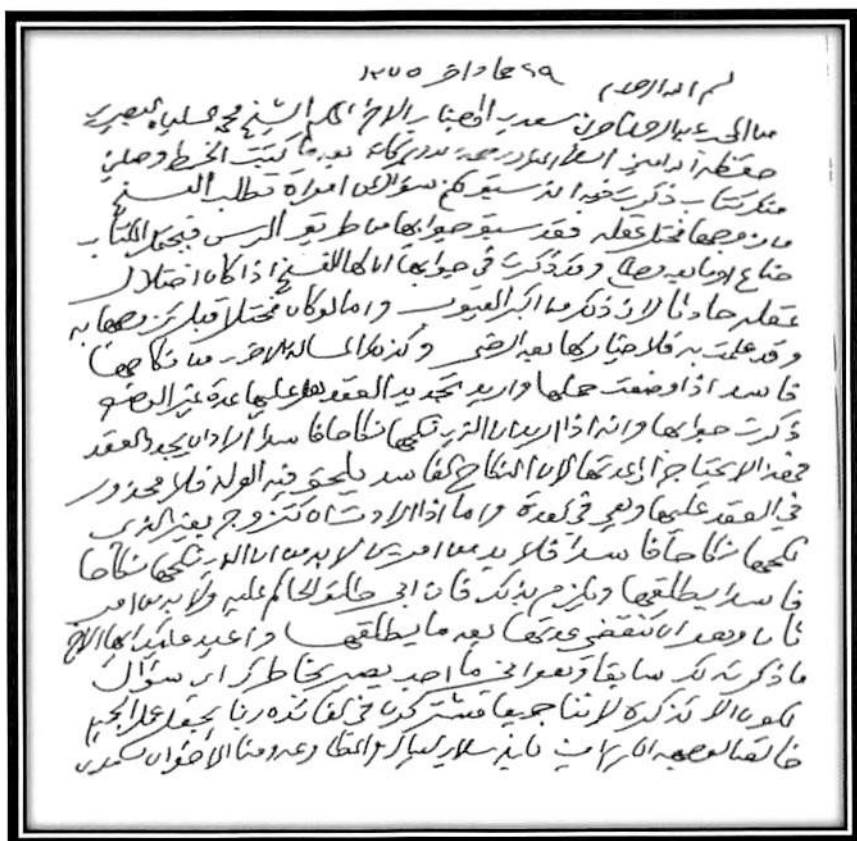 ٢٩ جماد آخر ١٣٧٥
بسم الله الرحمن الرحيم
من المحب عبد الرحمن بن ناصر بن سعدي إلى جناب الأخ المكرم الشيخ محمد السليمان البصيري
حفظه الله آمين السلام عليكم ورحمة الله وبركاته بعد ما كتبت الخط وصلني
منكم كتاب ذكرت فيه أنه سبق لكم سؤال عن امرأة تطلب الفسخ
من زوجها مختل عقله فقد سبق جوابها من طريق الرس فيحتمل الكتاب
ضاع أو ما بعد وصل وقد ذكرت في جوابها أن لها الفسخ إذا كان اختلال
عقله حادثا لأن ذلك من أكبر العيوب وأما لو كان مختلا قبل تزوجها به
وقد علمت به فلا خيار لها بعد الرضى وكذلك المسألة الأخرى من نكاحها
فاسد إذا وضعت حملها وأريد تجديد العقد هل عليها عدة غير الوضع
ذكرت جوابها وأنه إذا أريد أن الذي نكحها نكاحا فاسدا أراد أن يجدد العقد
فهذا لا يحتاج إلى عدتها لأن النكاح الفاسد يلحق فيه الولد فلا محذور
في العقد عليها وهي في العدة وأما إذا أرادت أن تتزوج بغير الذي
نكحها نكاحا فاسدا فلا بد من أمرين لا بد من أن الذي نكحها نكاحا
فاسدا يطلقها ويلزم بذلك فإن أبى طلق الحاكم عليه ولا بد من أمر
ثاني وهو أن تنقضي عدتها بعد ما يطلقها وأعيد عليك أيها الأخ
ما ذكرته لك سابقا وهو أني ما أحب يصير بخاطرك أي سؤال
يكون إلا تذكره لأننا جميعا مشتركون في الفائدة ربنا يجعل عمل الجميع
خالصا لوجهه الكريم بلغ سلامي العيال والجماعة ومنا الإخوان يسلمون